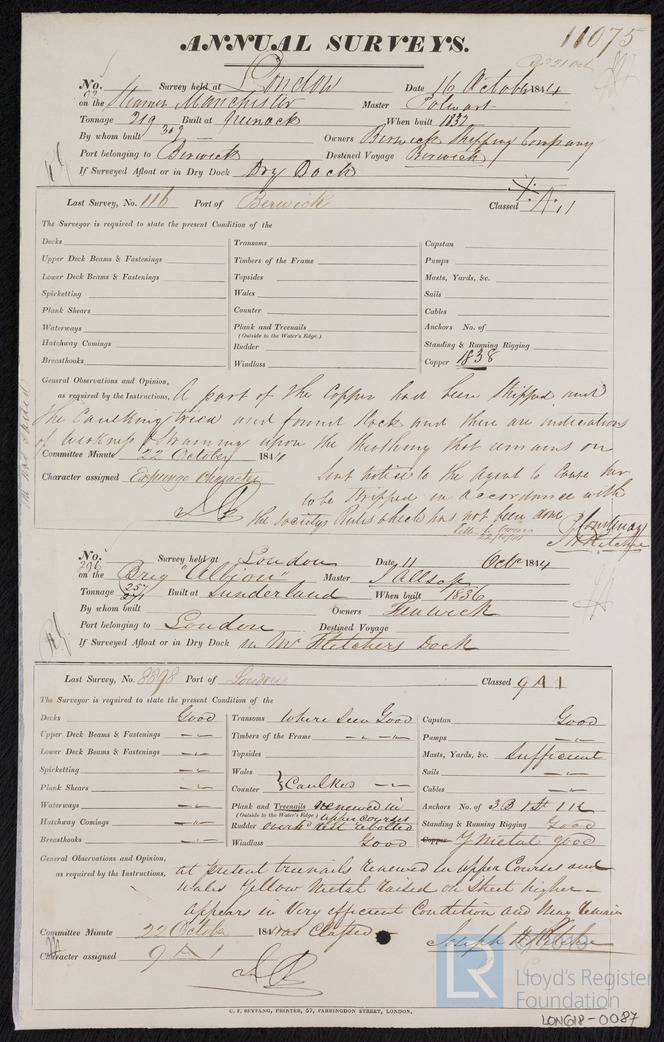 11075
ANNUAL SURVEYS.
No. 62 Survey held at London Date 16 October 1844
on the Steamer Manchester Master
Tonnage 219 / 309 Built at When built 1832
By whom built Owners Berwick Shipping Company
Port belonging to Berwick Destined Voyage Berwick
If Surveyed Afloat or in Dry Dock Dry Dock
Last Survey, No. 116 Port of Berwick Classed A1
The Surveyor is required to state the present Condition of the
Decks Transoms Capstan
Upper Deck Beams & Fastenings Timbers of the Frame Pumps
Lower Deck Beams & Fastenings Topsides Masts, Yards, &c.
Spirketting Wales Sails
Plank Shears Counter Cables
Waterways Plank and Treenails Anchors No. of
(Outside to the Water's Edge.)
Hatchway Comings Rudder Standing & Running Rigging
Breasthooks Windlass Copper 1838
General Observations and Opinion,
as required by the Instructions, A part of the Copper had been stripped and
the Caulking tried and found slack and there are indications
of working & straining upon the sheathing that remains on
Committee Minute 22 October 1844
Sent notice to the Agent to cause her
Character assigned Expunge Character
to be stripped in accordance with
the Society's Rules which has not been done
No. 296 Survey held at London Date 11 Octr 1844
on the Brig "Albion" Master J Allsop
Tonnage 257 / 271 Built at Sunderland When built 1836
By whom built Owners Fenwick
Port belonging to London Destined Voyage
If Surveyed Afloat or in Dry Dock in Mr Fletchers Dock
Last Survey, No. 8898 Port of London Classed 9 A 1
The Surveyor is required to state the present Condition of the
Decks Good Transoms Where seen Good Capstan Good
Upper Deck Beams & Fastenings Timbers of the Frame Pumps
Lower Deck Beams & Fastenings Topsides Masts, Yards, &c. Sufficient
Spirketting Wales Sails
Plank Shears Counter } Caulked Cables
Waterways Plank and Treenails renewed in Anchors No. of 3 B 1 St 1 K
(Outside to the Water's Edge) upper courses
Hatchway Comings Rudder rebolted Standing & Running Rigging Good
Breasthooks Windlass Good Copper Y Metal good
General Observations and Opinion,
as required by the Instructions, at present treenails renewed in upper Courses and
Wales Yellow Metal raised one Sheet higher –
appears in Very efficient Condition and May remain
Committee Minute 22 October 1844 as Classed
Character assigned 9 A 1
Joseph H Ritchie
C. F. SEYFANG, PRINTER, 57, FARRINGDON STREET, LONDON.
LR
© 2016
Lloyd's Register
Foundation
LON618-0087